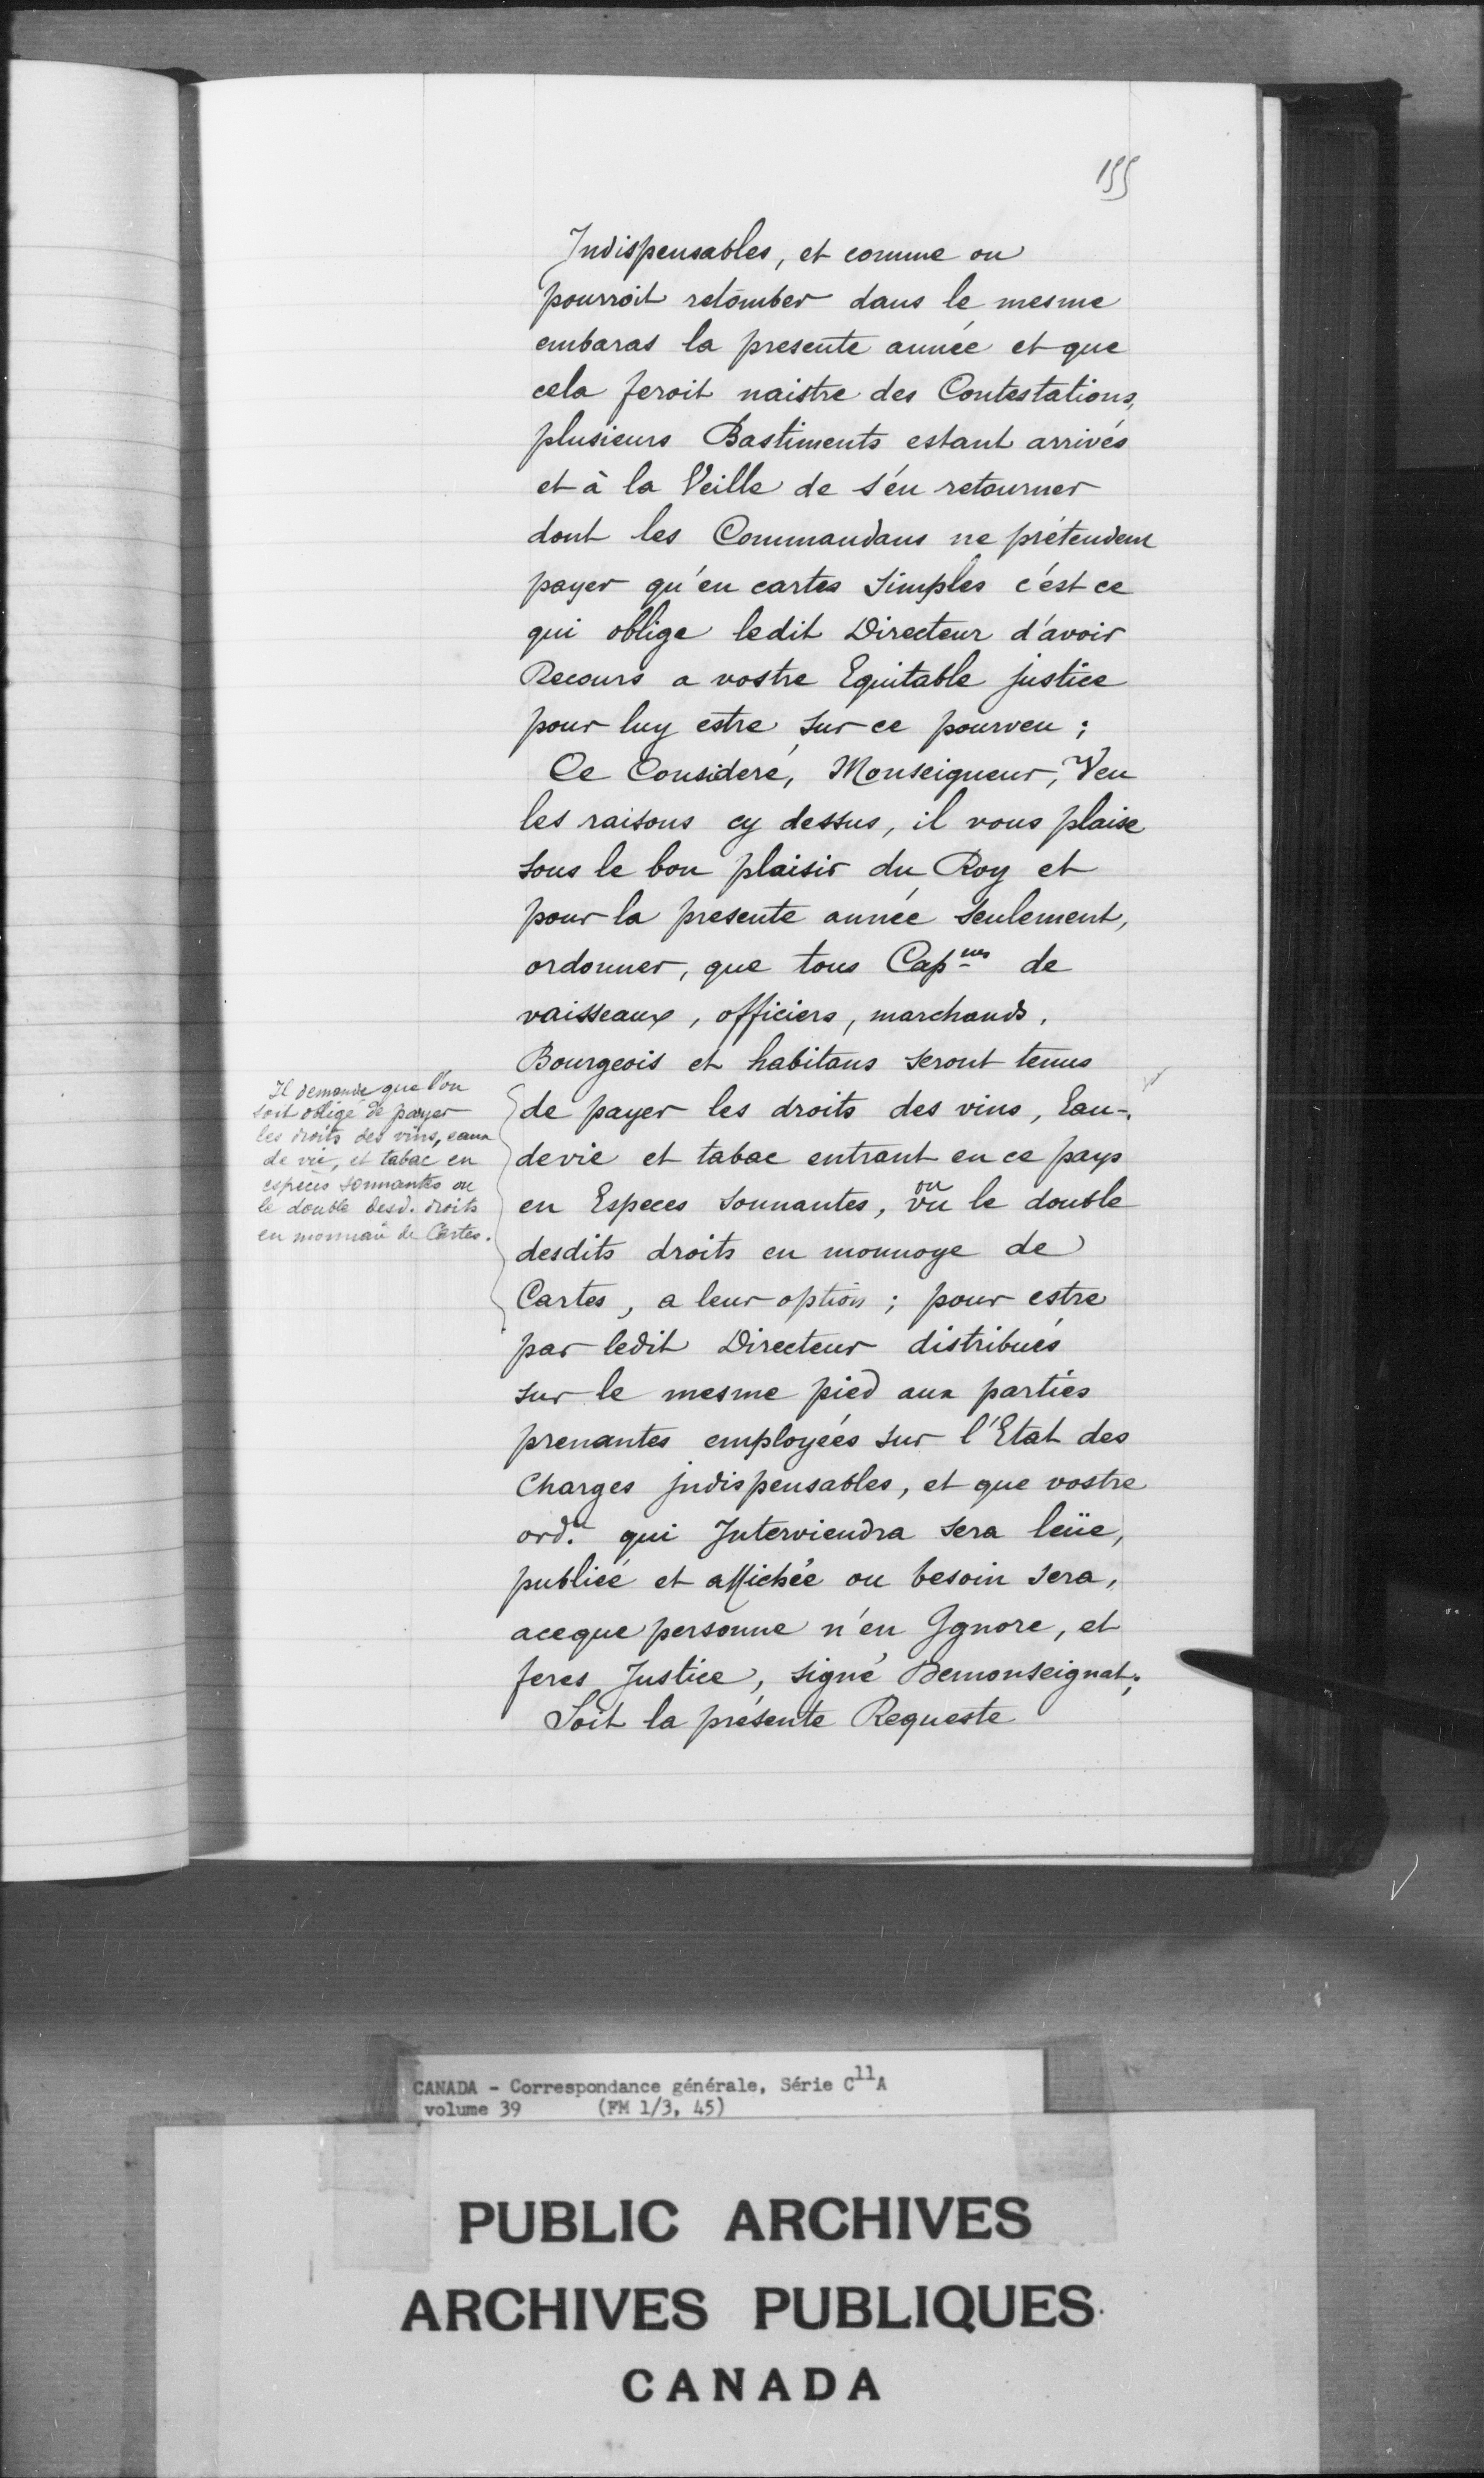 155
Indispensables, et comme on
pourroit retomber dans le mesme
embaras la presente année et que
cela feroit naistre des Contestations,
plusieurs Bastiments estant arrivés
et à la Veille de s'en retourner
dont les Commandans ne prétendent
payer qu'en cartes simples c'est ce
qui oblige ledit Directeur d'avoir
Recours a vostre Equitable justice
pour luy estre sur ce pourveu ;
Ce Consideré, Monseigneur, Veu
les raisons cy dessus, il vous plaise
sous le bon plaisir du Roy et
pour la presente année seulement,
ordonner, que tous Cap.nes de
vaisseaux, officiers, marchands,
Bourgeois et habitans seront tenus
de payer les droits des vins, Eau-
devie et tabac entrant en ce pays
en Especes sonnantes, ou le double
desdits droits en monnoye de
Cartes, a leur option ; pour estre
par ledit Directeur distribués
sur le mesme pied aux parties
prenantes employées sur l'Etat des
Charges jndispensables, et que vostre
ord.ce qui Interviendra sera leüe,
publiée et affichée ou besoin sera,
aceque personne n'en Ignore, et
feres Justice, signé Demonseignat ;
Soit la présente Requeste
Il demande que l'on
soit obligé de payer
les droits des vins, eaux
de vie, et tabac en
espèces sonnantes ou
le double desd. droits
en monnaie de Cartes.
CANADA - Correspondance générale, Série C11A
volume 39 (FM 1/3, 45)
PUBLIC ARCHIVES
ARCHIVES PUBLIQUES
CANADA